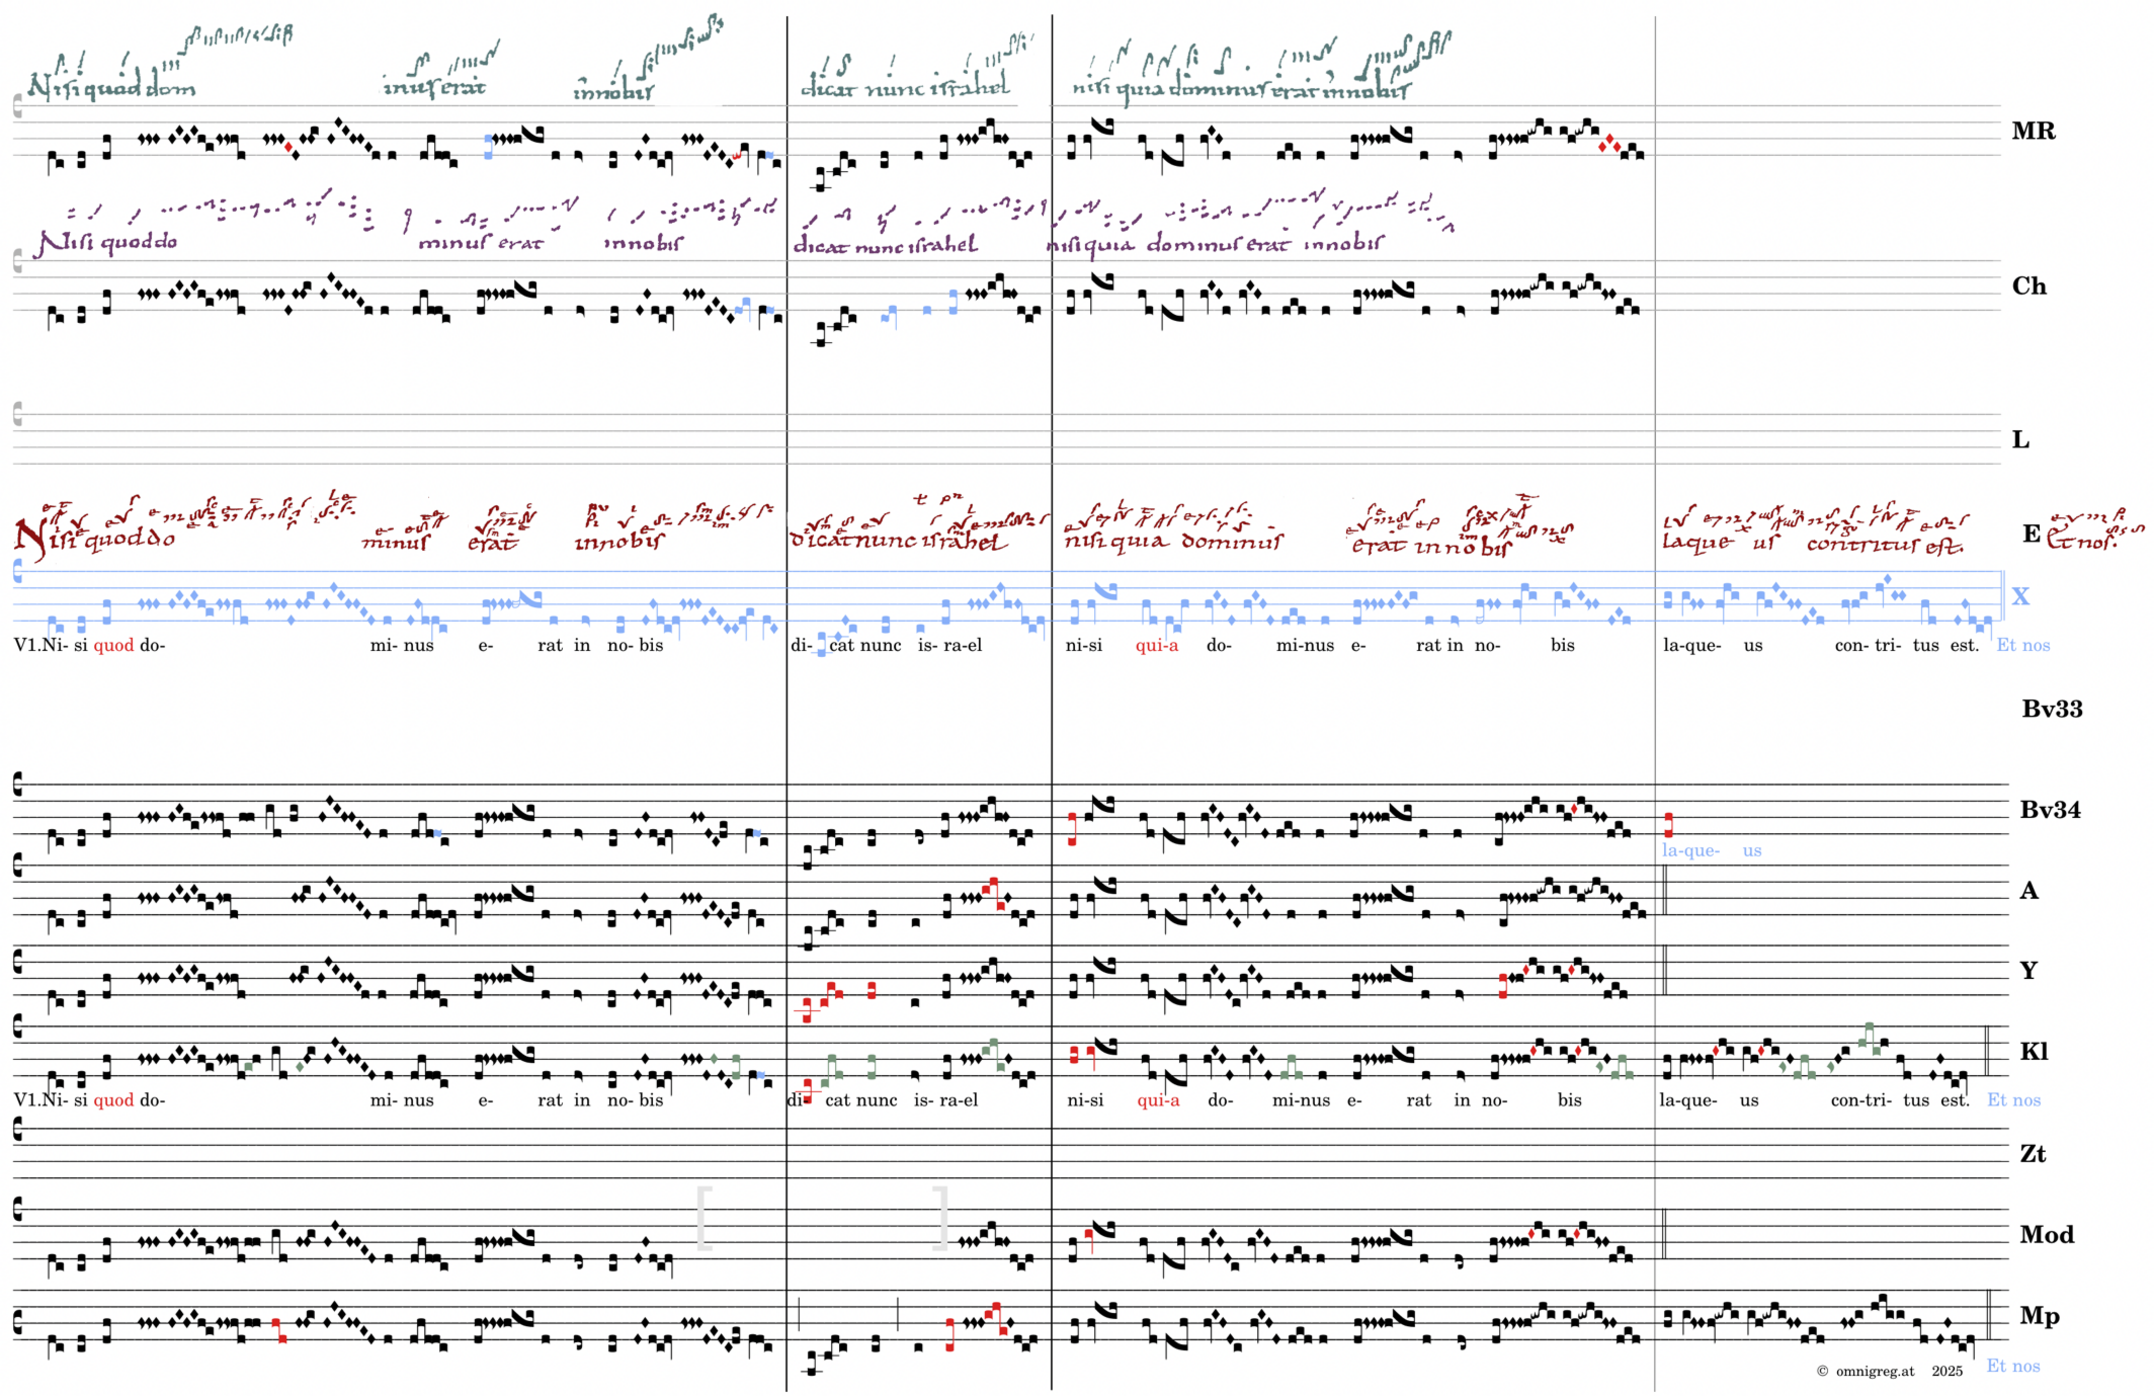 Nisi quod dom inus erat in nobis dicat nunc israhel nisi quia dominus erat in nobis
MR
Nisi quod do minus erat in nobis dicat nunc israhel nisi quia dominus erat in nobis
Ch
L
Nisi quod do minus erat in nobis dicat nunc israhel nisi quia dominus erat in nobis laque us contritus est. E Et nos.
X
V1.Ni- si quod do- mi- nus e- rat in no- bis di- cat nunc is- ra-el ni-si qui-a do- mi-nus e- rat in no- bis la-que- us con- tri- tus est. Et nos
Bv33
Bv34
la-que- us
A
Y
Kl
V1.Ni- si quod do- mi- nus e- rat in no- bis di- cat nunc is- ra-el ni-si qui-a do- mi-nus e- rat in no- bis la-que- us con-tri- tus est. Et nos
Zt
Mod
Mp
Et nos
© omnigreg.at 2025